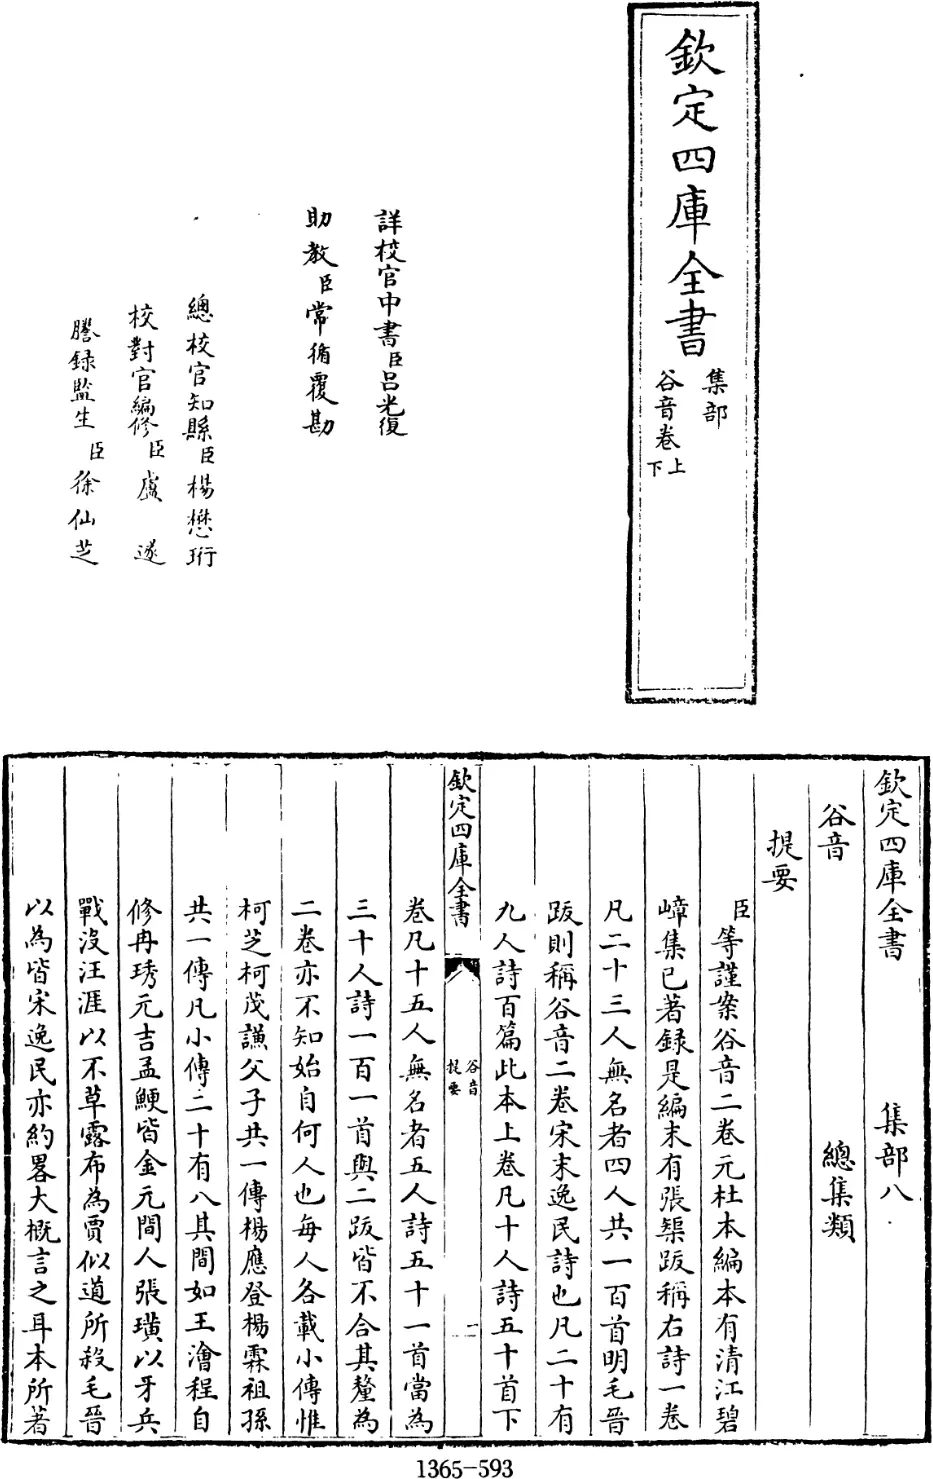 欽定四庫全書
集部
谷音卷上下
詳校官中書臣呂光復
助教臣常循覆勘
總校官知縣臣楊懋珩
校對官編修臣盧遂
謄録監生臣徐仙芝
欽定四庫全書 集部八
谷音 總集類
提要
臣等謹案谷音二卷元杜本編本有清江碧
嶂集已著録是編末有張榘跋稱右詩一卷
凡二十三人無名者四人共一百首明毛晉
跋則稱谷音二卷宋末逸民詩也凡二十有
九人詩百篇此本上卷凡十人詩五十首下
欽定四庫全書
谷音
提要
一
卷凡十五人無名者五人詩五十一首當為
三十人詩一百一首與二跋皆不合其釐為
二卷亦不知始自何人也每人各載小傳惟
柯芝柯茂謙父子共一傳楊應登楊霖祖孫
共一傳凡小傳二十有八其間如王澮程自
修冉琇元吉孟鯁皆金元間人張璜以牙兵
戰没汪涯以不草露布為賈似道所殺毛晉
以為皆宋逸民亦約畧大概言之耳本所著
1365-593